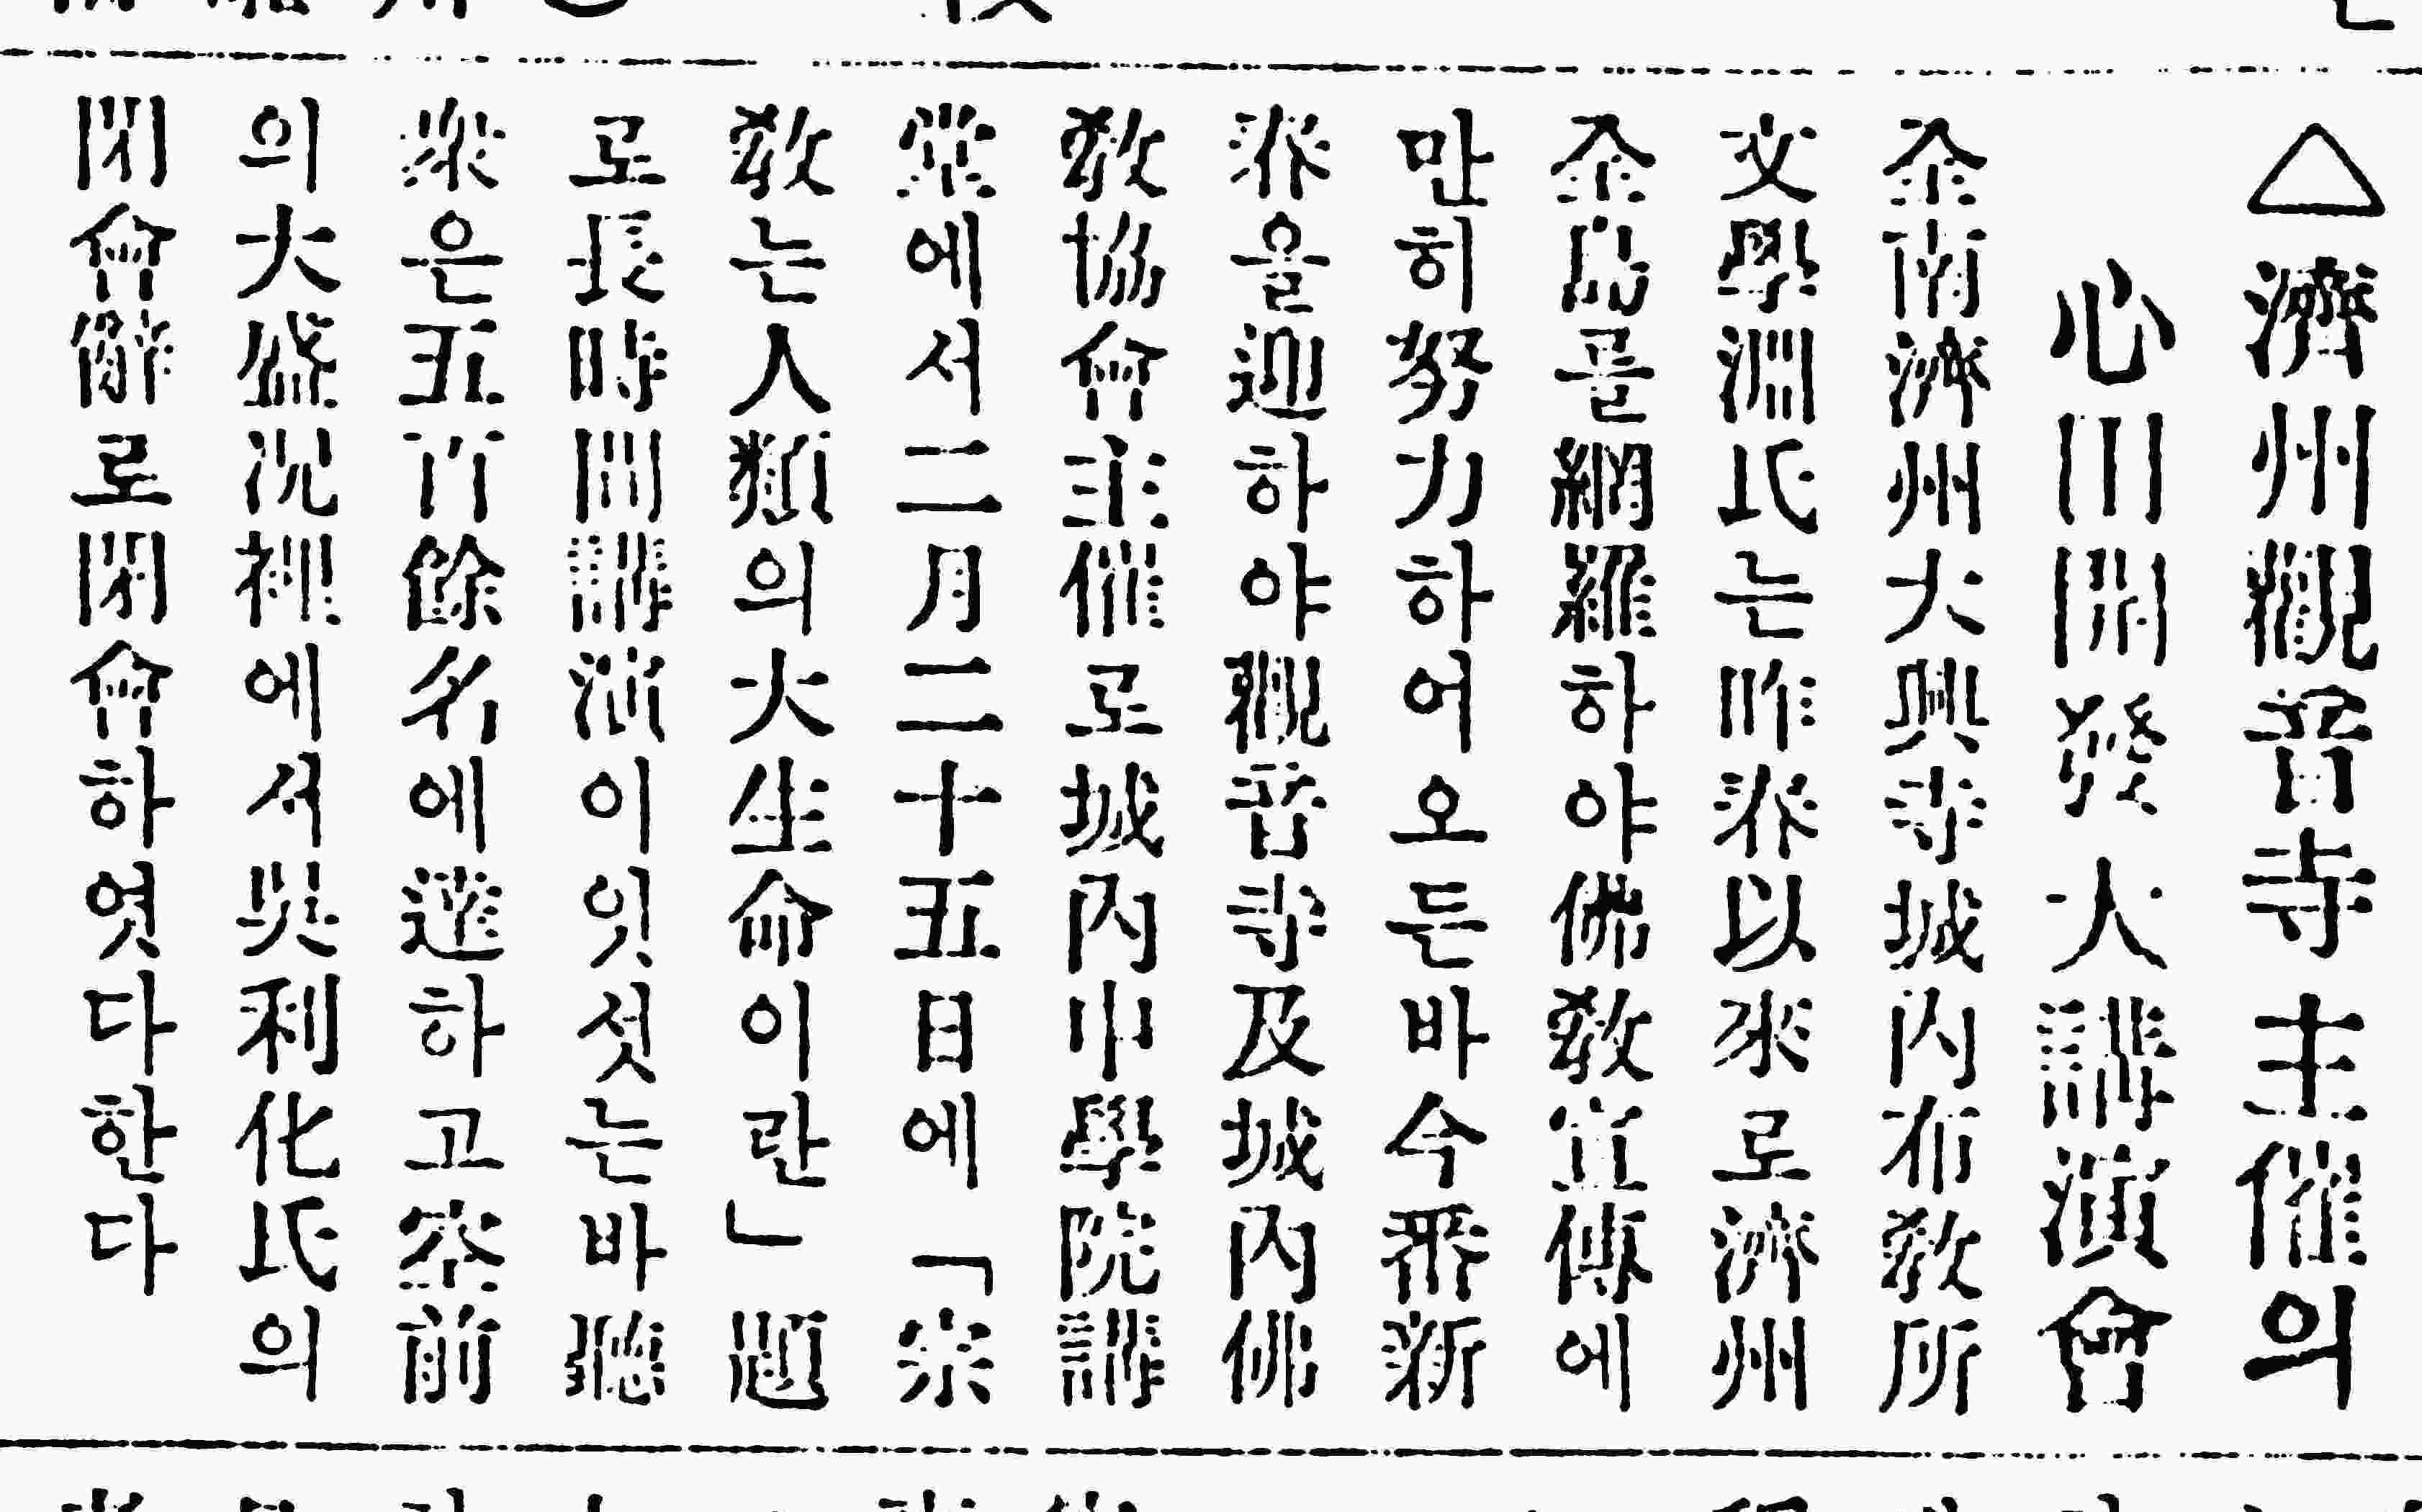 △濟州觀音寺主催의
心田開發大講演會
全南濟州大興寺城內布敎所
文學淵氏는昨春以來로濟州
全島를網羅하야佛敎宣傳에
만히努力하어오든바今番新
春을迎하야觀音寺及城內佛
敎協會主催로城內中學院講
堂에서二月二十五日에「宗
敎는人類의大生命이란」題
로長時間講演이잇섯는바聽
衆은五百餘名에達하고空前
의大盛況裡에서吳利化氏의
閉會辭로閉會하엿다한다